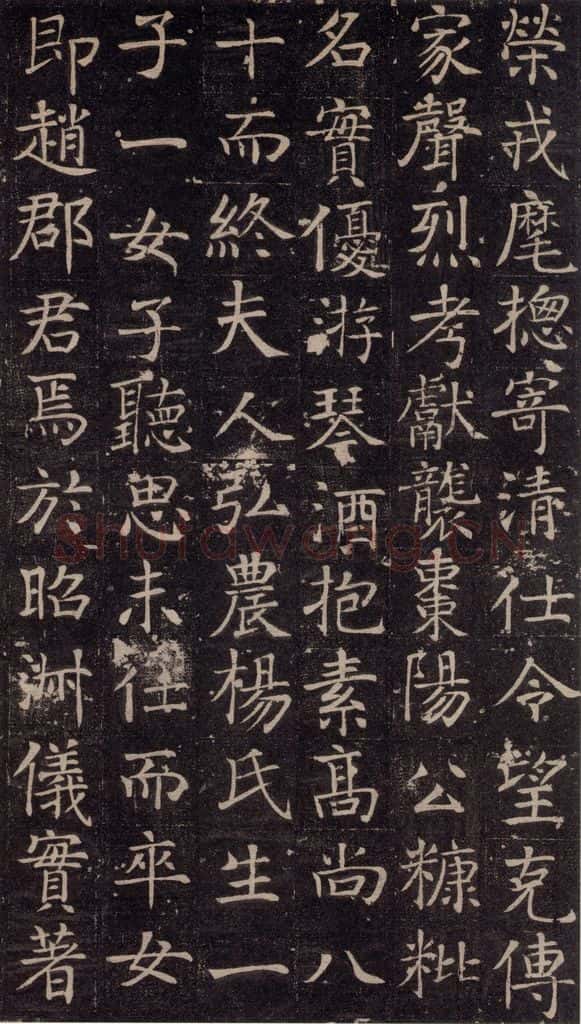 榮戎麾揔寄清仕令望克傳
家聲烈考獻襲棗陽公糠粃
名實優游琴酒抱素髙尚八
十而終夫人弘農楊氏生一
子一女子聽思未仕而卒女
即趙郡君焉於昭淑儀實著
Shufawang.CN